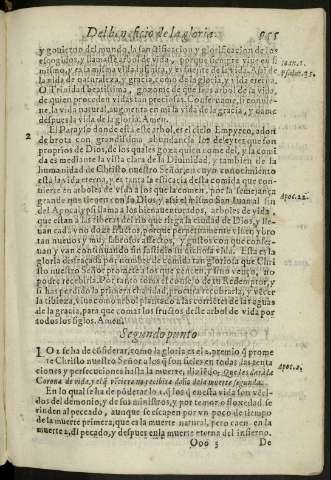 Del beneficio de la gloria. 955
y gouierno del mundo, la sanctificacion y glorificacion de los
escogidos, y llamasse arbol de vida, porque siempre viue en si
mismo, y es la misma vida sancta, y es fuente de la vida. Assi de
la vida de naturaleza, y gracia, como de la gloria, y vida eterna.
O Trinidad beatissima, gozome de que seas arbol de la vida, de
quien proceden vidas tan preciosas. Conserua me, si conuie-
ne, la vida natural, augmenta en mi la vida de la gracia, y dame
despues la vida de la gloria. Amen.
Ioan. 1.
Psalm. 35.
2 El Parayso donde està este arbol, es el cielo Empyreo, adon
de brota con grandissima abundancia los deleytes que son
proprios de Dios, de los quales goza quien come del, y la comi
da es mediante la vista clara de la Diuinidad, y tambien de la
humanidad de Christo nuestro Señor, en cuyo conocimiento
està la vida eterna, y es tanta la eficacia desta comida que con-
uierte en arboles de vida a los que la comen, por la semejança
grande que tienen con su Dios, y assi el mismo San Iuan al fin
del Apocalypsi llama a los bienauenturados, arboles de vida,
que estan a las riberas del rio que riega la ciudad de Dios, y lle-
uan cada año doze fructos, porque perpetuamente viuen y bro
tan nueuos y muy sabrosos affectos, y gustos con que conser-
uan y van continuando sin fastidio su dichosa vida. Esta es la
gloria disfraçada por nombre de comida tan gloriosa que Chri
sto nuestro Señor promete a los que vencen, y sino venço, no
podre recebirla. Por tanto toma el consejo de tu Redemptor, y
si has perdido la primera charidad, procura recobrarla, y vècer
la tibieza, viuo como arbol plantado a las corrientes de las aguas
de la gracia, para que comas los fructos deste arbol de vida por
todos los siglos. Amen.
Apoc. 22.
Segundo punto
LO 2. se ha de cõsiderar, como la gloria es el 2. premio q̃ prome
te Christo nuestro Señor a los q̃ son fieles en todas las tenta
ciones y persecuciones hasta la muerte, diziẽdo: Que les darà la
Corona de vida, y el q̃ vẽciere no recibirà daño de la muerte segunda.
Apoc. 2.
En lo qual se ha de põderar lo 1. q̃ los q̃ en esta vida son vẽci-
dos del demonio, y de sus ministros, y por temor o floxedad se
rinden al pecado, aunque se escapen por vn poco de tiempo
de la muerte primera, que es la muerte natural, pero caen en la
muerte 2. del pecado, y despues en la muerte eterna del infierno.
Ooo 5 De